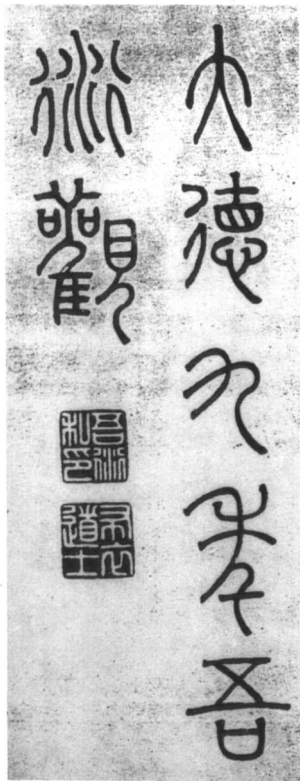 大德九年吾
衍觀
吾衍
私印
布衣
道士